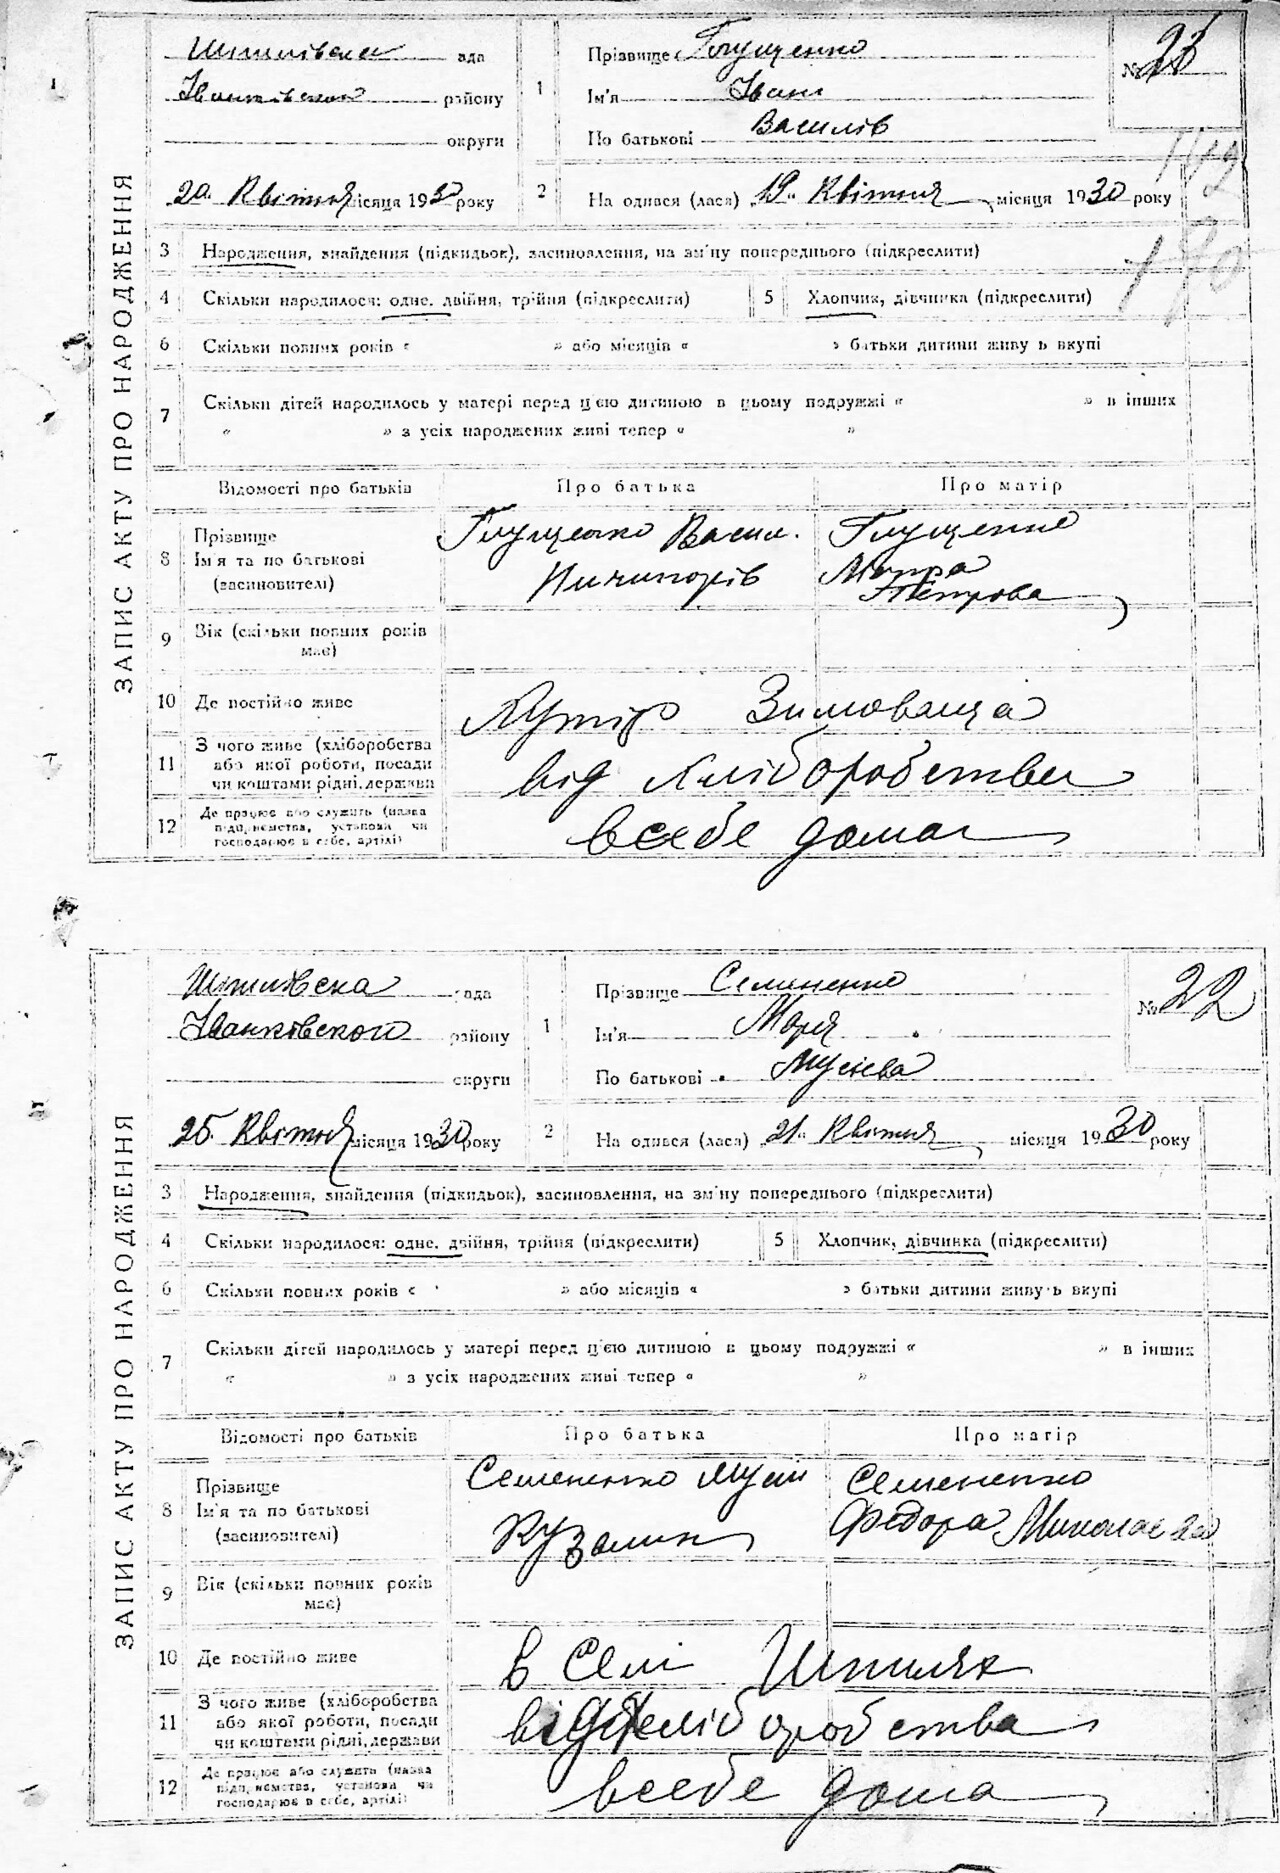 ЗАПИС АКТУ ПРО НАРОДЖЕННЯ
Шпилівска рада
Іванківской району
округи
20 Квітня місяця 1930 року
1 Прізвище Глущенко
Ім'я Іван
По батькові Василів
№
2 На одився (лася) 19 Квітня місяця 1930 року
170
3 Народження, знайдення (підкидьок), засиновлення, на зм'ну попереднього (підкреслити)
4 Скільки народилося: одне, двійня, трійня (підкреслити)
5 Хлопчик, дівчинка (підкреслити)
6 Скільки повних років « » або місяців « » батьки дитини живуть вкупі
7 Скільки дітей народилось у матері перед ц'єю дитиною в цьому подружжі « » в інших
« » з усіх народжених живі тепер « »
Відомості про батьків Про батька Про матір
8 Прізвище
Ім'я та по батькові
(засиновителі)
Глущенко Васил.
Ничипорів
Глущенко
Мотра
Петрова
9 Вік (скільки повних років
має)
10 Де постійно живе Хутір Зимовища
11 З чого живе (хліборобства
або якої роботи, посади
чи коштами рідні, держави
від хліборобства
12 Де працює або служить (назва
підприємства, установи чи
господарює в себе, артілі)
всебе дома
ЗАПИС АКТУ ПРО НАРОДЖЕННЯ
Шпилівска рада
Іванківской району
округи
25 Квітня місяця 1930 року
1 Прізвище Семиненко
Ім'я Марія
По батькові Мусієва
№ 22
2 На одився (лася) 21 Квітня місяця 1930 року
3 Народження, знайдення (підкидьок), засиновлення, на зм'ну попереднього (підкреслити)
4 Скільки народилося: одне, двійня, трійня (підкреслити)
5 Хлопчик, дівчинка (підкреслити)
6 Скільки повних років « » або місяців « » батьки дитини живуть вкупі
7 Скільки дітей народилось у матері перед ц'єю дитиною в цьому подружжі « » в інших
« » з усіх народжених живі тепер « »
Відомості про батьків Про батька Про матір
8 Прізвище
Ім'я та по батькові
(засиновителі)
Семененко Мусій
Кузьмин
Семененко
Федора Миколаєва
9 Вік (скільки повних років
має)
10 Де постійно живе в селі Шпилях
11 З чого живе (хліборобства
або якої роботи, посади
чи коштами рідні, держави
від хліборобства
12 Де працює або служить (назва
підприємства, установи чи
господарює в себе, артілі)
всебе дома